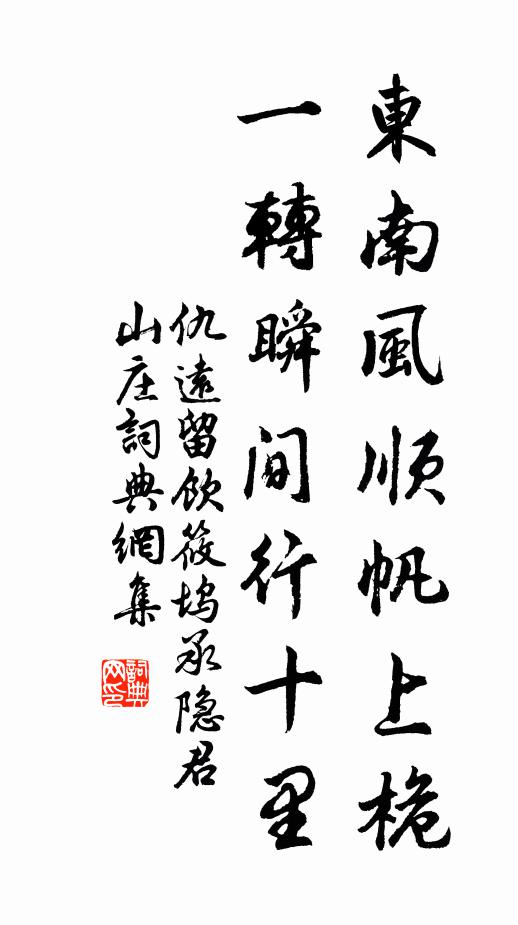 東南風順帆上桅
一轉瞬間行十里
仇遠留飲筱塢承隐君
山庄詞典網集
詞典网印